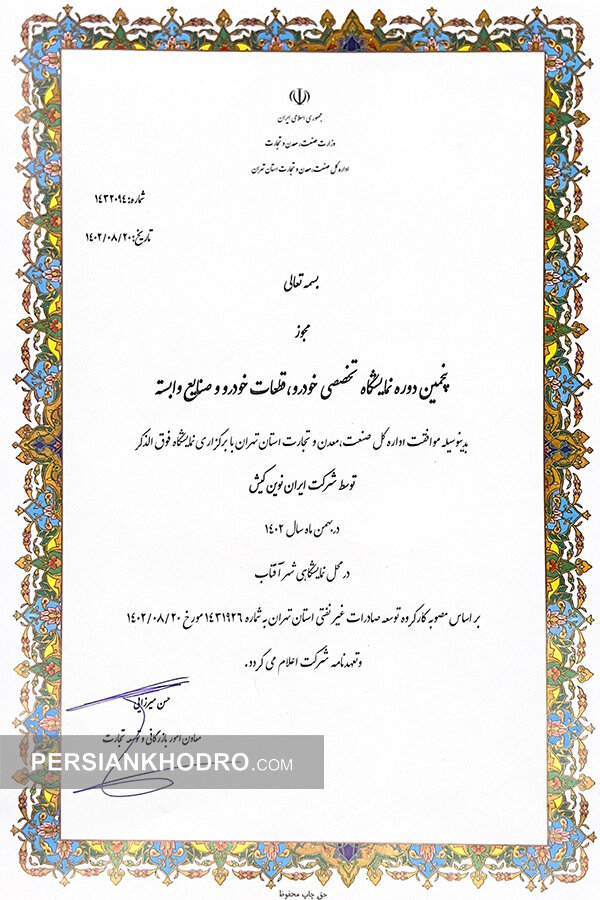 جمهوری اسلامی ایران
وزارت صنعت، معدن و تجارت
اداره کل صنعت، معدن و تجارت استان تهران
شماره: ۱۴۳۲۰۹۴
تاریخ: ۱۴۰۲/۰۸/۲۰
بسمه تعالی
مجوز
پنجمین دوره نمایشگاه تخصصی خودرو، قطعات خودرو و صنایع وابسته
بدینوسیله موافقت اداره کل صنعت، معدن و تجارت استان تهران با برگزاری نمایشگاه فوق الذکر
توسط شرکت ایران نوین کیش
در بهمن ماه سال ۱۴۰۲
در محل نمایشگاهی شهر آفتاب
بر اساس مصوبه کارگروه توسعه صادرات غیر نفتی استان تهران به شماره ۱۴۳۱۹۲۶ مورخ ۱۴۰۲/۰۸/۲۰
و تعهدنامه شرکت اعلام می گردد.
حسن میرزایی
معاون امور بازرگانی و توسعه تجارت
PERSIANKHODRO.COM
حق چاپ محفوظ